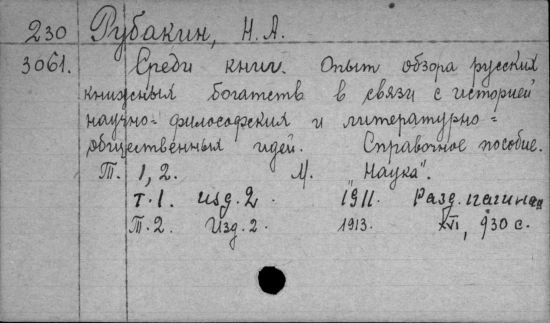 230 Рубакин, Н. А.
3061. Среди книг. Опыт обзора русских
книжных богатств в связи с историей
научно-философских и литературно-
общественных идей. Справочное пособие.
Т. 1, 2. М. "Наука".
т. 1. изд. 2. 1911. Разд. пагинац
Т. 2. Изд. 2. 1913. XVI, 930 с.